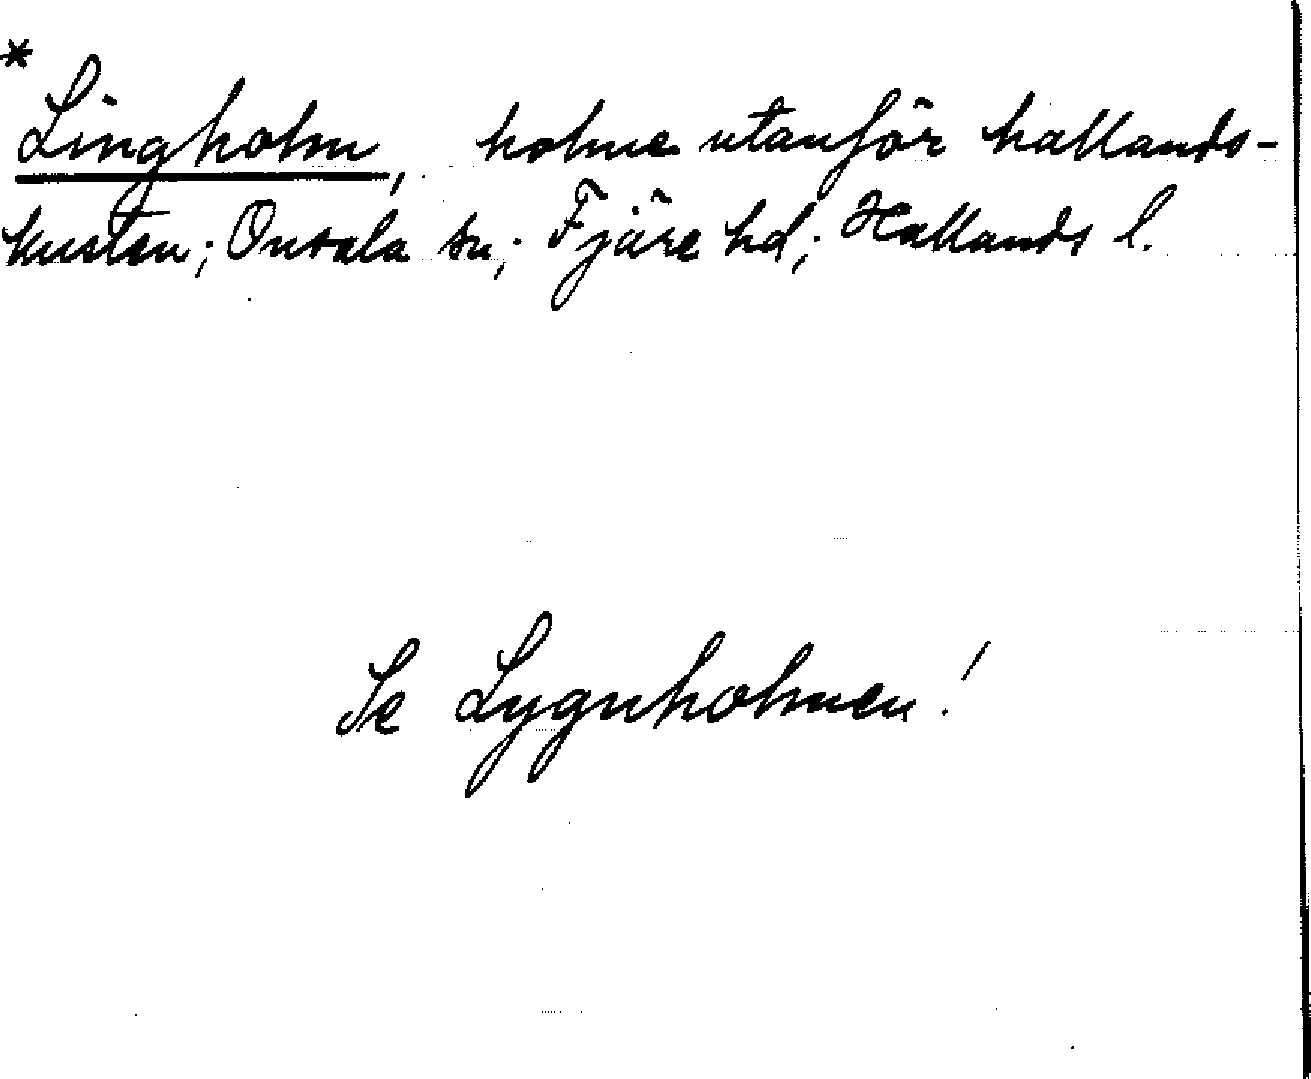 * Lingholm, holme utanför hallands-
kusten; Onsala sn; Fjäre hd; Hallands l.
Se Lygnholmen!